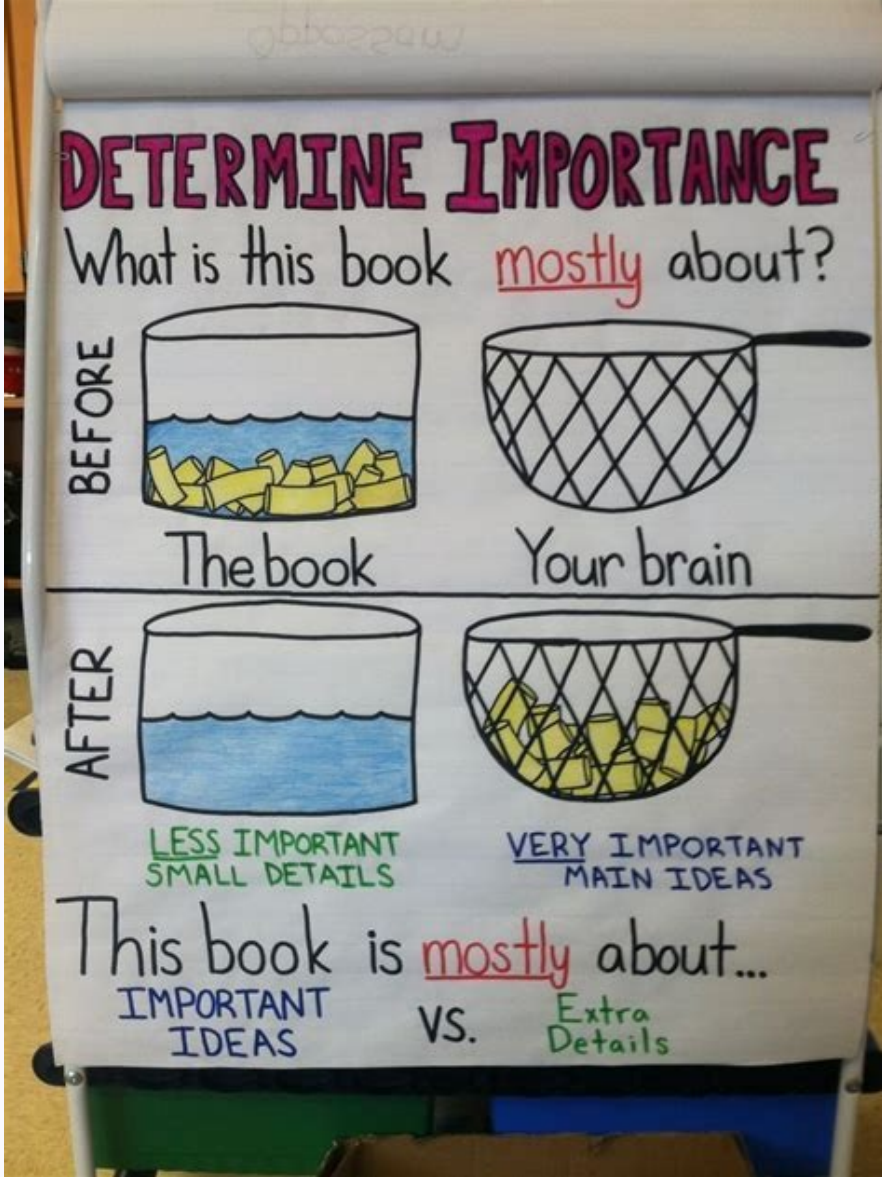 Oppossum
DETERMINE IMPORTANCE
What is this book mostly about?
BEFORE
The book
Your brain
AFTER
LESS IMPORTANT
SMALL DETAILS
VERY IMPORTANT
MAIN IDEAS
This book is mostly about...
IMPORTANT
IDEAS
VS.
Extra
Details